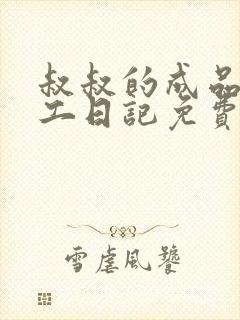 叔叔的成品
工日記免費
雪虐風饕